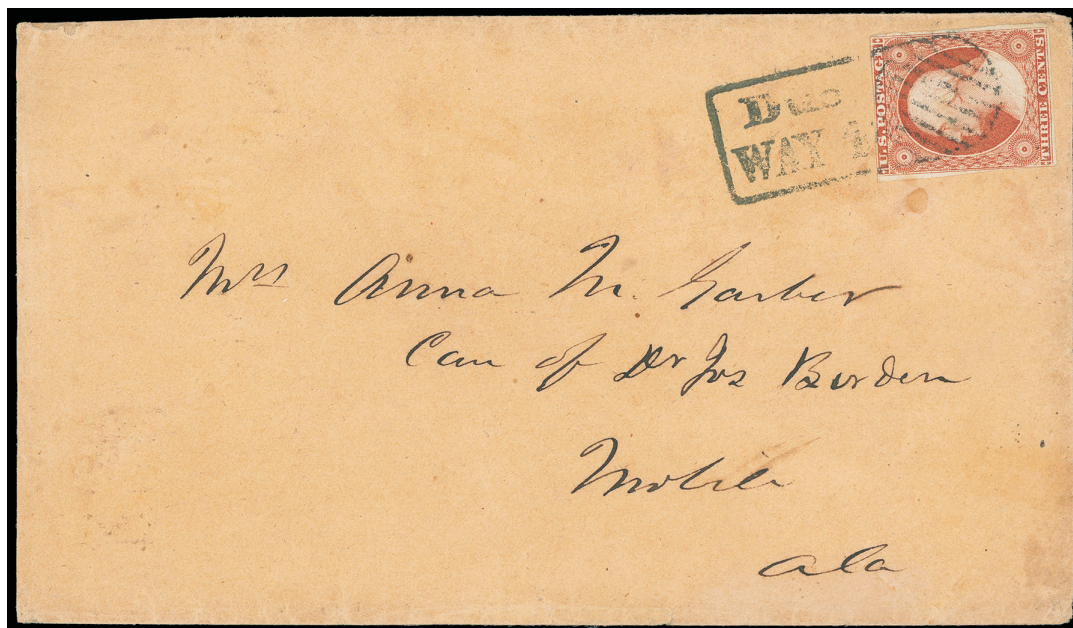 Due
WAY 1
U.S. POSTAGE
THREE CENTS
Mrs Anna M. Garber
Care of Dr Jos Borden
Mobile
Ala